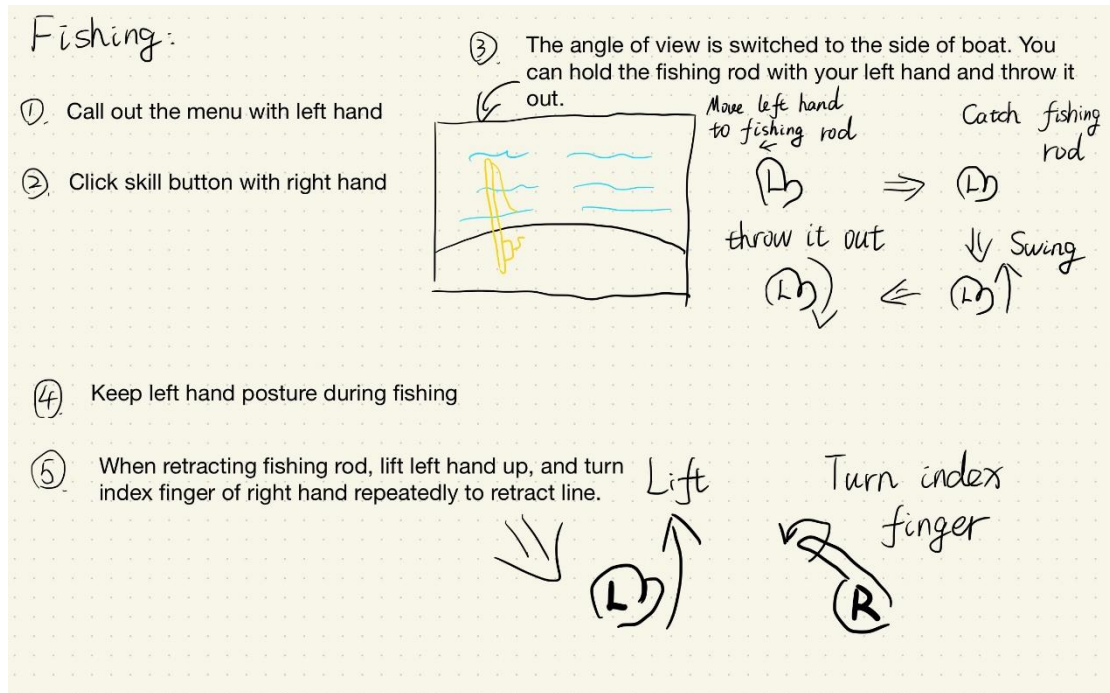 Fishing:
① Call out the menu with left hand
② Click skill button with right hand
③ The angle of view is switched to the side of boat. You
can hold the fishing rod with your left hand and throw it
out.
Move left hand
to fishing rod
Catch fishing
rod
L
L
throw it out
Swing
L
L
④ Keep left hand posture during fishing
⑤ When retracting fishing rod, lift left hand up, and turn
index finger of right hand repeatedly to retract line.
Lift
Turn index
finger
L
R